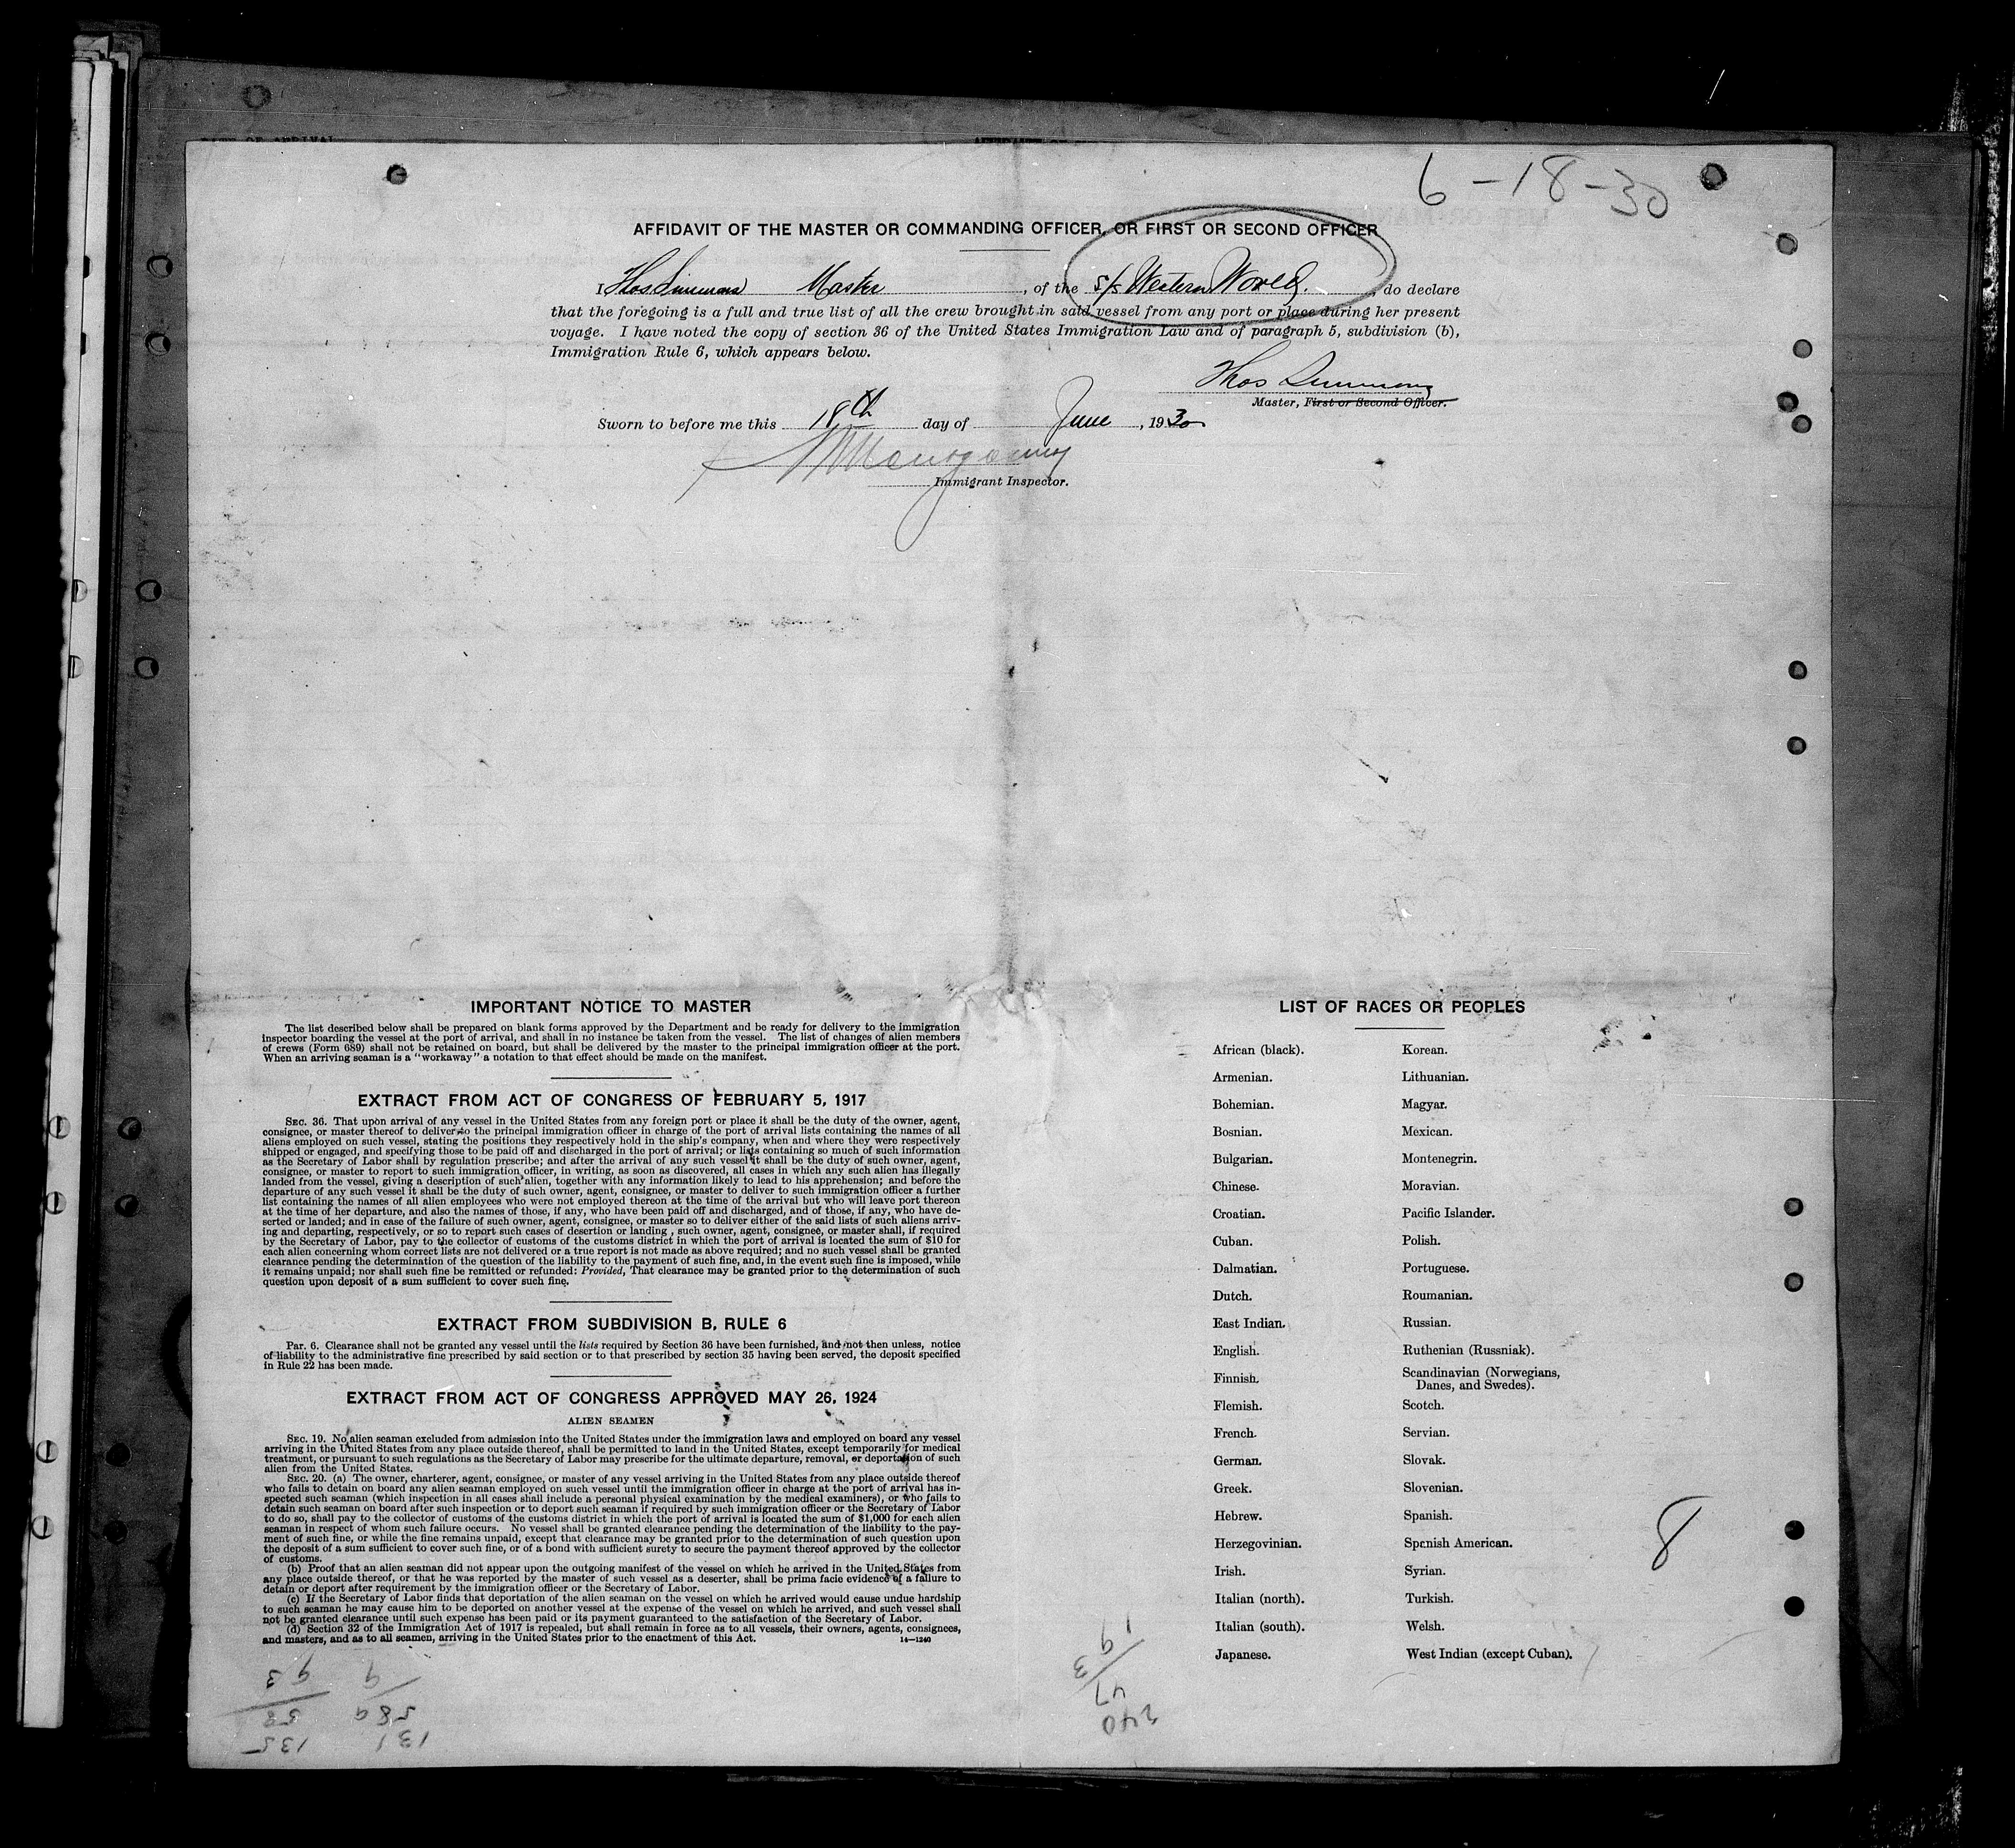 6-18-30
AFFIDAVIT OF THE MASTER OR COMMANDING OFFICER, OR FIRST OR SECOND OFFICER
I Thos Simmons Master, of the S/S Western World., do declare
that the foregoing is a full and true list of all the crew brought in said vessel from any port or place during her present
voyage. I have noted the copy of section 36 of the United States Immigration Law and of paragraph 5, subdivision (b),
Immigration Rule 6, which appears below.
Thos Simmons
Master, First or Second Officer.
Sworn to before me this 18th day of June, 1930
Immigrant Inspector.
IMPORTANT NOTICE TO MASTER
The list described below shall be prepared on blank forms approved by the Department and be ready for delivery to the immigration
inspector boarding the vessel at the port of arrival, and shall in no instance be taken from the vessel. The list of changes of alien members
of crews (Form 689) shall not be retained on board, but shall be delivered by the master to the principal immigration officer at the port.
When an arriving seaman is a "workaway" a notation to that effect should be made on the manifest.
EXTRACT FROM ACT OF CONGRESS OF FEBRUARY 5, 1917
SEC. 36. That upon arrival of any vessel in the United States from any foreign port or place it shall be the duty of the owner, agent,
consignee, or master thereof to deliver to the principal immigration officer in charge of the port of arrival lists containing the names of all
aliens employed on such vessel, stating the positions they respectively hold in the ship's company, when and where they were respectively
shipped or engaged, and specifying those to be paid off and discharged in the port of arrival; or lists containing so much of such information
as the Secretary of Labor shall by regulation prescribe; and after the arrival of any such vessel it shall be the duty of such owner, agent,
consignee, or master to report to such immigration officer, in writing, as soon as discovered, all cases in which any such alien has illegally
landed from the vessel, giving a description of such alien, together with any information likely to lead to his apprehension; and before the
departure of any such vessel it shall be the duty of such owner, agent, consignee, or master to deliver to such immigration officer a further
list containing the names of all alien employees who were not employed thereon at the time of the arrival but who will leave port thereon
at the time of her departure, and also the names of those, if any, who have been paid off and discharged, and of those, if any, who have de-
serted or landed; and in case of the failure of such owner, agent, consignee, or master so to deliver either of the said lists of such aliens arriv-
ing and departing, respectively, or so to report such cases of desertion or landing, such owner, agent, consignee, or master shall, if required
by the Secretary of Labor, pay to the collector of customs of the customs district in which the port of arrival is located the sum of $10 for
each alien concerning whom correct lists are not delivered or a true report is not made as above required; and no such vessel shall be granted
clearance pending the determination of the question of the liability to the payment of such fine, and, in the event such fine is imposed, while
it remains unpaid; nor shall such fine be remitted or refunded: Provided, That clearance may be granted prior to the determination of such
question upon deposit of a sum sufficient to cover such fine.
EXTRACT FROM SUBDIVISION B, RULE 6
PAR. 6. Clearance shall not be granted any vessel until the lists required by Section 36 have been furnished, and not then unless, notice
of liability to the administrative fine prescribed by said section or to that prescribed by section 35 having been served, the deposit specified
in Rule 22 has been made.
EXTRACT FROM ACT OF CONGRESS APPROVED MAY 26, 1924
ALIEN SEAMEN
SEC. 19. No alien seaman excluded from admission into the United States under the immigration laws and employed on board any vessel
arriving in the United States from any place outside thereof, shall be permitted to land in the United States, except temporarily for medical
treatment, or pursuant to such regulations as the Secretary of Labor may prescribe for the ultimate departure, removal, or deportation of such
alien from the United States.
SEC. 20. (a) The owner, charterer, agent, consignee, or master of any vessel arriving in the United States from any place outside thereof
who fails to detain on board any alien seaman employed on such vessel until the immigration officer in charge at the port of arrival has in-
spected such seaman (which inspection in all cases shall include a personal physical examination by the medical examiners), or who fails to
detain such seaman on board after such inspection or to deport such seaman if required by such immigration officer or the Secretary of Labor
to do so, shall pay to the collector of customs of the customs district in which the port of arrival is located the sum of $1,000 for each alien
seaman in respect of whom such failure occurs. No vessel shall be granted clearance pending the determination of the liability to the pay-
ment of such fine, or while the fine remains unpaid, except that clearance may be granted prior to the determination of such question upon
the deposit of a sum sufficient to cover such fine, or of a bond with sufficient surety to secure the payment thereof approved by the collector
of customs.
(b) Proof that an alien seaman did not appear upon the outgoing manifest of the vessel on which he arrived in the United States from
any place outside thereof, or that he was reported by the master of such vessel as a deserter, shall be prima facie evidence of a failure to
detain or deport after requirement by the immigration officer or the Secretary of Labor.
(c) If the Secretary of Labor finds that deportation of the alien seaman on the vessel on which he arrived would cause undue hardship
to such seaman he may cause him to be deported on another vessel at the expense of the vessel on which he arrived, and such vessel shall
not be granted clearance until such expense has been paid or its payment guaranteed to the satisfaction of the Secretary of Labor.
(d) Section 32 of the Immigration Act of 1917 is repealed, but shall remain in force as to all vessels, their owners, agents, consignees,
and masters, and as to all seamen, arriving in the United States prior to the enactment of this Act. 14—1240
LIST OF RACES OR PEOPLES
African (black). Korean.
Armenian. Lithuanian.
Bohemian. Magyar.
Bosnian. Mexican.
Bulgarian. Montenegrin.
Chinese. Moravian.
Croatian. Pacific Islander.
Cuban. Polish.
Dalmatian. Portuguese.
Dutch. Roumanian.
East Indian. Russian.
English. Ruthenian (Russniak).
Finnish. Scandinavian (Norwegians,
Danes, and Swedes).
Flemish. Scotch.
French. Servian.
German. Slovak.
Greek. Slovenian.
Hebrew. Spanish.
Herzegovinian. Spanish American.
Irish. Syrian.
Italian (north). Turkish.
Italian (south). Welsh.
Japanese. West Indian (except Cuban).
8